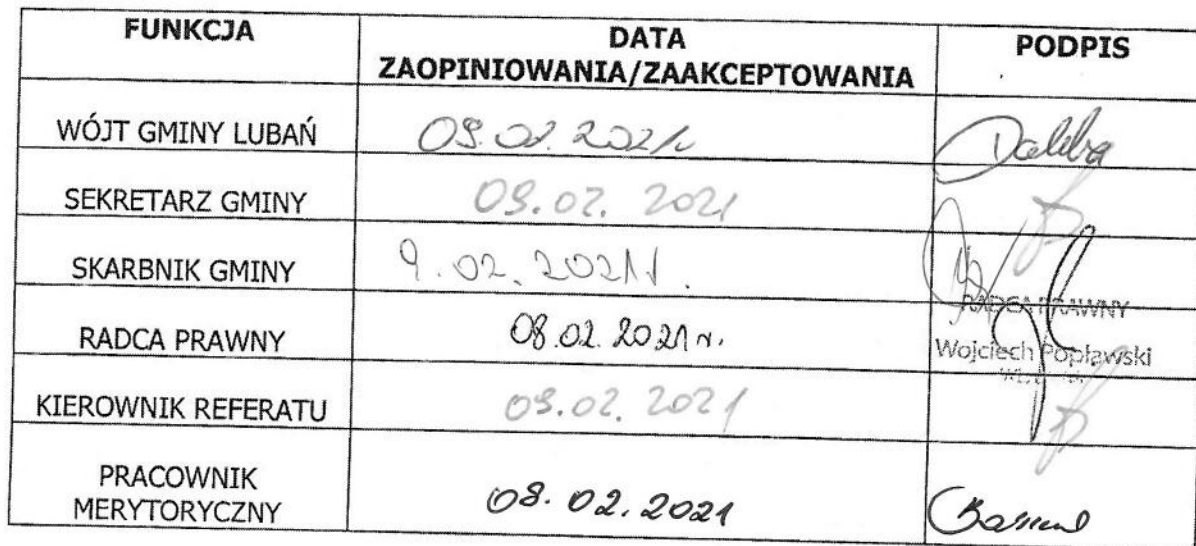 FUNKCJA
DATA
ZAOPINIOWANIA/ZAAKCEPTOWANIA
PODPIS
WÓJT GMINY LUBAŃ
09.02.2021r
SEKRETARZ GMINY
09.02.2021
SKARBNIK GMINY
9.02.2021r.
RADCA PRAWNY
08.02.2021 r.
RADCA PRAWNY
Wojciech Popławski
KIEROWNIK REFERATU
09.02.2021
PRACOWNIK
MERYTORYCZNY
08.02.2021